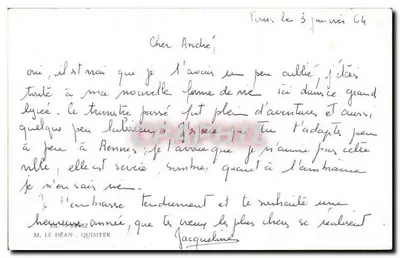 le 3 janvier 64
Cher André,
oui, il est vrai que je t'avais un peu oublié, j'étais
toute à ma nouvelle forme de vie ici dans ce grand
lycée. Ce trimestre passé fut plein d'aventures et aussi,
quelque peu que tu t'adaptes peu
à peu à Rennes; je t'avoue que je n'aime pas cette
ville, elle est sévère, sombre, quant à l'ambiance
je n'en sais rien.
Je t'embrasse tendrement et te souhaite une
heureuse année, que tes vœux les plus chers se réalisent.
M. LE DÉAN - QUIMPER
Jacqueline